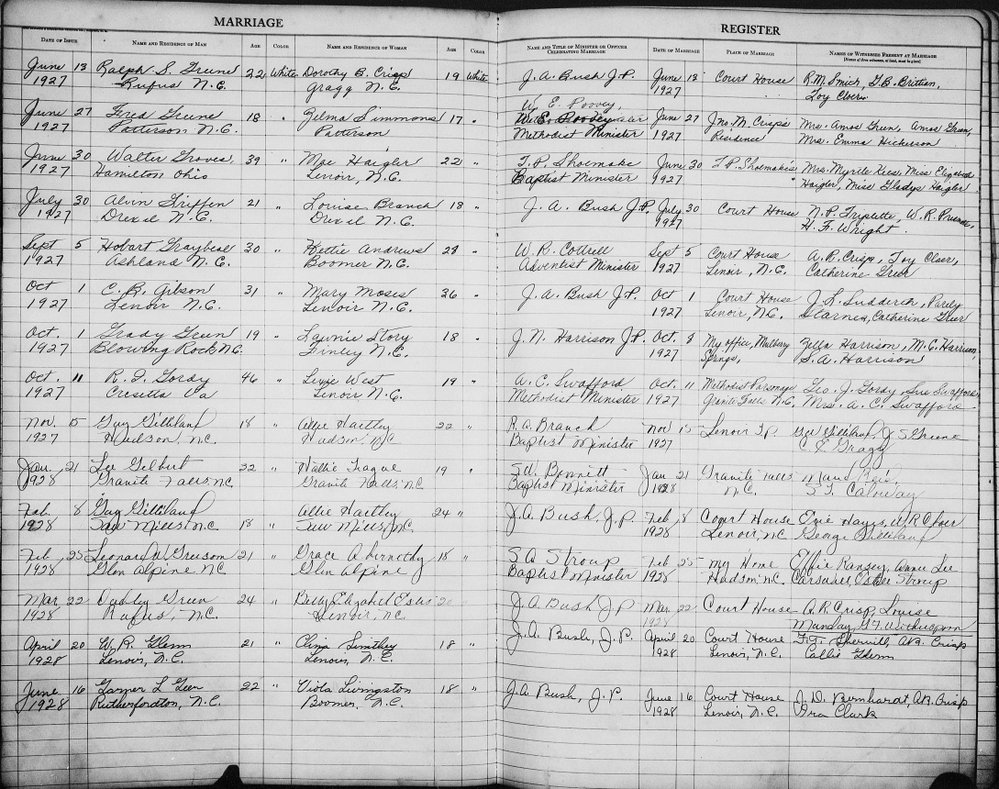 MARRIAGE
REGISTER
DATE OF ISSUE NAME AND RESIDENCE OF MAN AGE COLOR NAME AND RESIDENCE OF WOMAN AGE COLOR NAME AND TITLE OF MINISTER OR OFFICER CELEBRATING MARRIAGE DATE OF MARRIAGE PLACE OF MARRIAGE NAMES OF WITNESSES PRESENT AT MARRIAGE
June 13 Ralph S. Greene 22 White Dorothy B. Crisp 19 White J. A. Bush J.P. June 13 Court House R.M. Smith,
1927 Rufus N.C. Gragg N.C. 1927
June 27 Fred Greene 18 " Zelma Simmons 17 " W. E. Poovey June 27 Jno. M. Crisp's Mrs. Amos Green, Amos Green,
1927 Patterson N.C. Patterson Methodist Minister 1927 Residence Mrs. Emma Hickerson
June 30 Walter Groves, 39 " Mae Haigler 22 " T. P. Shoemake June 30 T. P. Shoemake's Mrs. Myrtle Miss Elizabeth
1927 Hamilton Ohio Lenoir, N.C. Baptist Minister 1927 Haigler, Miss Gladys Haigler
July 30 Alvin Griffin 21 " Louise Branch 18 " J. A. Bush J.P. July 30 Court House N. P. Triplette, W. R.
1927 Drexel N.C. Drexel N.C. 1927 H. F. Wright.
Sept 5 Hobart Graybeal 30 " Hettie Andrews 28 " W. R. Cottrell Sept 5 Court House A. R. Crisp,
1927 Ashland N.C. Boomer N.C. Adventist Minister 1927 Lenoir, N.C. Catherine Greer
Oct 1 C. B. Gibson 31 " Mary Moses 26 " J. A. Bush J.P. Oct 1 Court House J. L. Sudderth,
1927 Lenoir N.C. Lenoir N.C. 1927 Lenoir, N.C. Starnes, Catherine Greer
Oct. 1 Grady Green 19 " Story 18 " J. N. Harrison J.P. Oct. 8 My office, Mulberry Zella Harrison, M. C. Harrison,
1927 Blowing Rock N.C. Finley N.C. 1927 Springs, S. A. Harrison
Oct. 11 R. I. Gordy 46 " Lizzie West 19 " A. C. Swafford Oct. 11 Methodist Parsonage Geo. J. Gordy Swafford,
1927 Va Lenoir N.C. Methodist Minister 1927 Granite Falls N.C. Mrs. A. C. Swafford.
Nov. 15 Guy Gilliland 18 " Allie Hartley 22 " R. A. Branch Nov 15 Lenoir Tp. Gilliland, J S Greene
1927 Hudson, N.C. Hudson, N.C. Baptist Minister 1927 C. E. Gragg
Jan. 21 Lee Gilbert 22 " Hallie Teague 19 " S. W. Bennett Jan 21 Granite Falls Maud
1928 Granite Falls N.C. Granite Falls N.C. Baptist Minister 1928 N.C. Caloway
Feb. 8 Guy Gilliland Allie Hartley 24 " J. A. Bush, J. P. Feb 8 Court House Hayes,
1928 Saw Mills N.C. 18 " Saw Mills, N.C. 1928 Lenoir, N.C. George Gilliland
Feb 25 Leonard W Greeson 21 " Grace Abernethy 18 " S. A. Stroup Feb 25 My Home Effie Ramsey, Lee
1928 Glen Alpine N.C. Glen Alpine Baptist Minister 1928 Hudson N.C. Stroup
Mar 22 Dudley Green 24 " Betty Elizabeth Estes 20 J. A. Bush J P Mar 22 Court House A. R. Crisp, Louise
1928 Rufus, N.C. Lenoir, N.C. 1928 Munday, Witherspoon
April 20 W. R. Glenn 21 " Clima Smithey 18 " J. A. Bush, J. P. April 20 Court House Sherrill, A.R. Crisp
1928 Lenoir, N.C. Lenoir, N.C. 1928 Lenoir, N.C. Callie Glenn
June 16 Garner L Geer 22 " Viola Livingston 18 " J. A. Bush, J. P. June 16 Court House J. D. Bernhardt, A.R. Crisp
1928 Rutherfordton, N.C. Boomer, N.C. 1928 Lenoir, N.C. Ira Clark